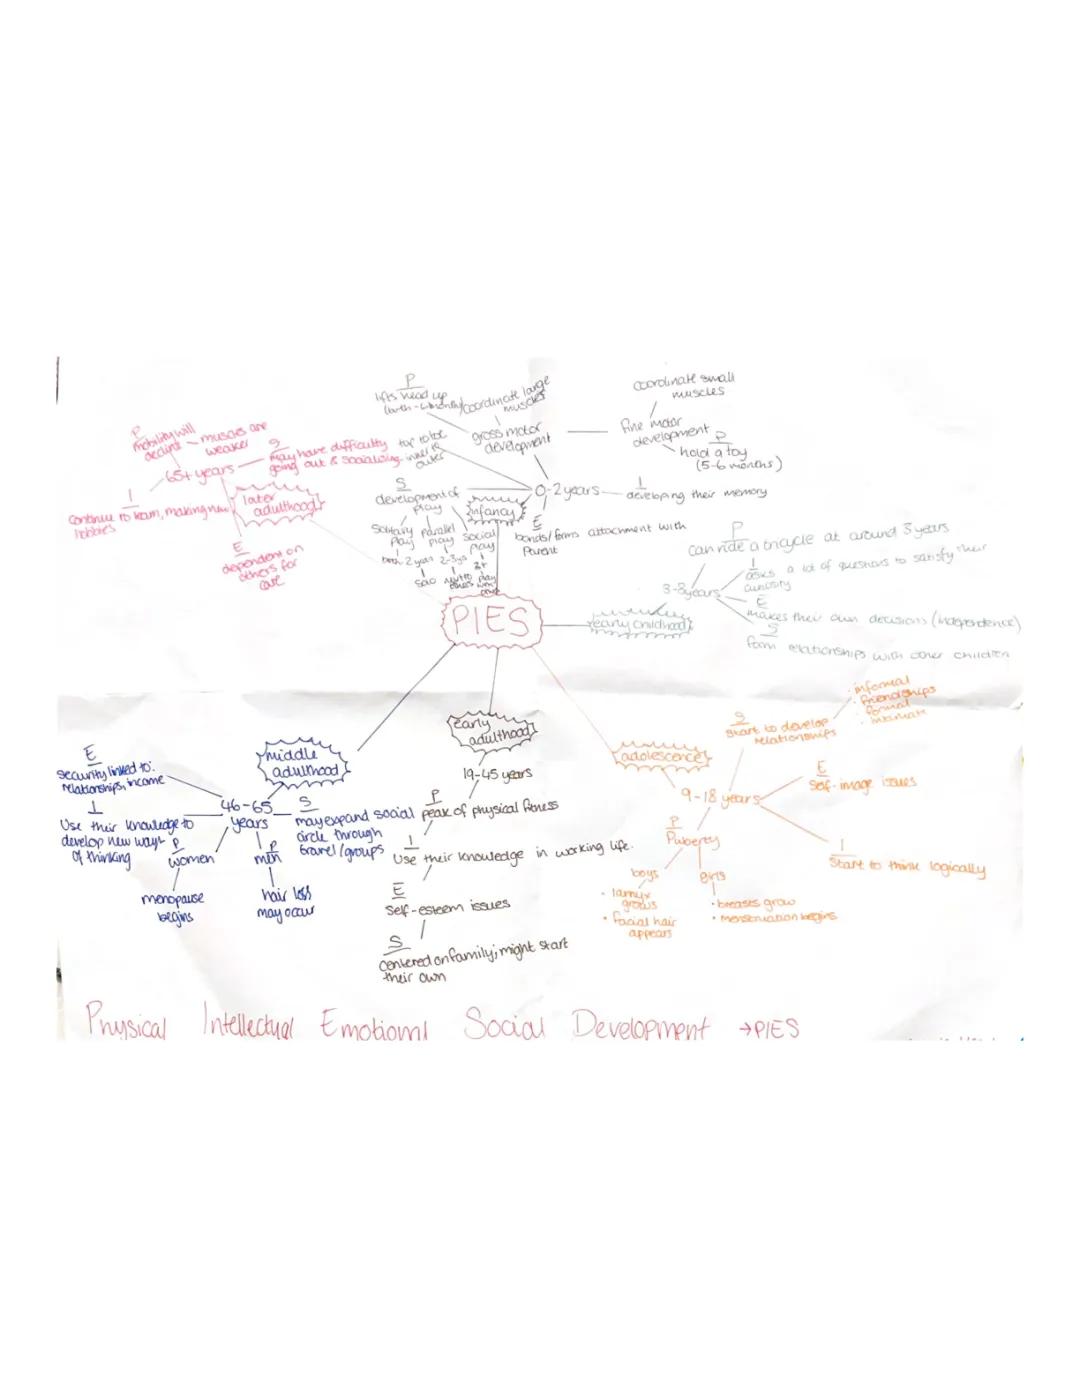 P
lifts head up
coordinate large
muscles
gross motor
development
coordinate small
muscles
fine motor
development
P
hold a toy
(5-6 months)
0-2 years
I
developing their memory
E
bonds/forms attachment with
Parent
S
development of
play
solitary
play
parallel
play
social
play
birth-2 years
2-3yrs
3+
solo
infancy
P
mobility will
decline
muscles are
weaker
65+ years
S
may have difficulty
going out & socialising
I
continue to learn, making new
hobbies
later
adulthood
E
dependent on
others for
care
PIES
early childhood
3-8years
P
can ride a tricycle at around 3 years
I
asks a lot of questions to satisfy their
curiosity
E
makes their own decisions (independence)
S
form relationships with other children
adolescence
9-18 years
S
Start to develop
relationships
· informal
· friendships
· formal
· intimate
E
Self-image issues
I
Start to think logically
P
Puberty
boys
• larnyx
grows
• facial hair
appears
girls
• breasts grow
• menstruation begins
early
adulthood
19-45 years
P
peak of physical fitness
I
Use their knowledge in working life.
E
Self-esteem issues
S
centered on family; might start
their own
middle
adulthood
46-65
years
E
security linked to:
relationships, income
I
Use their knowledge to
develop new ways
of thinking
P
women
menopause
begins
P
men
hair loss
may occur
S
may expand social
circle through
travel/groups
Physical Intellectual Emotional Social Development → PIES